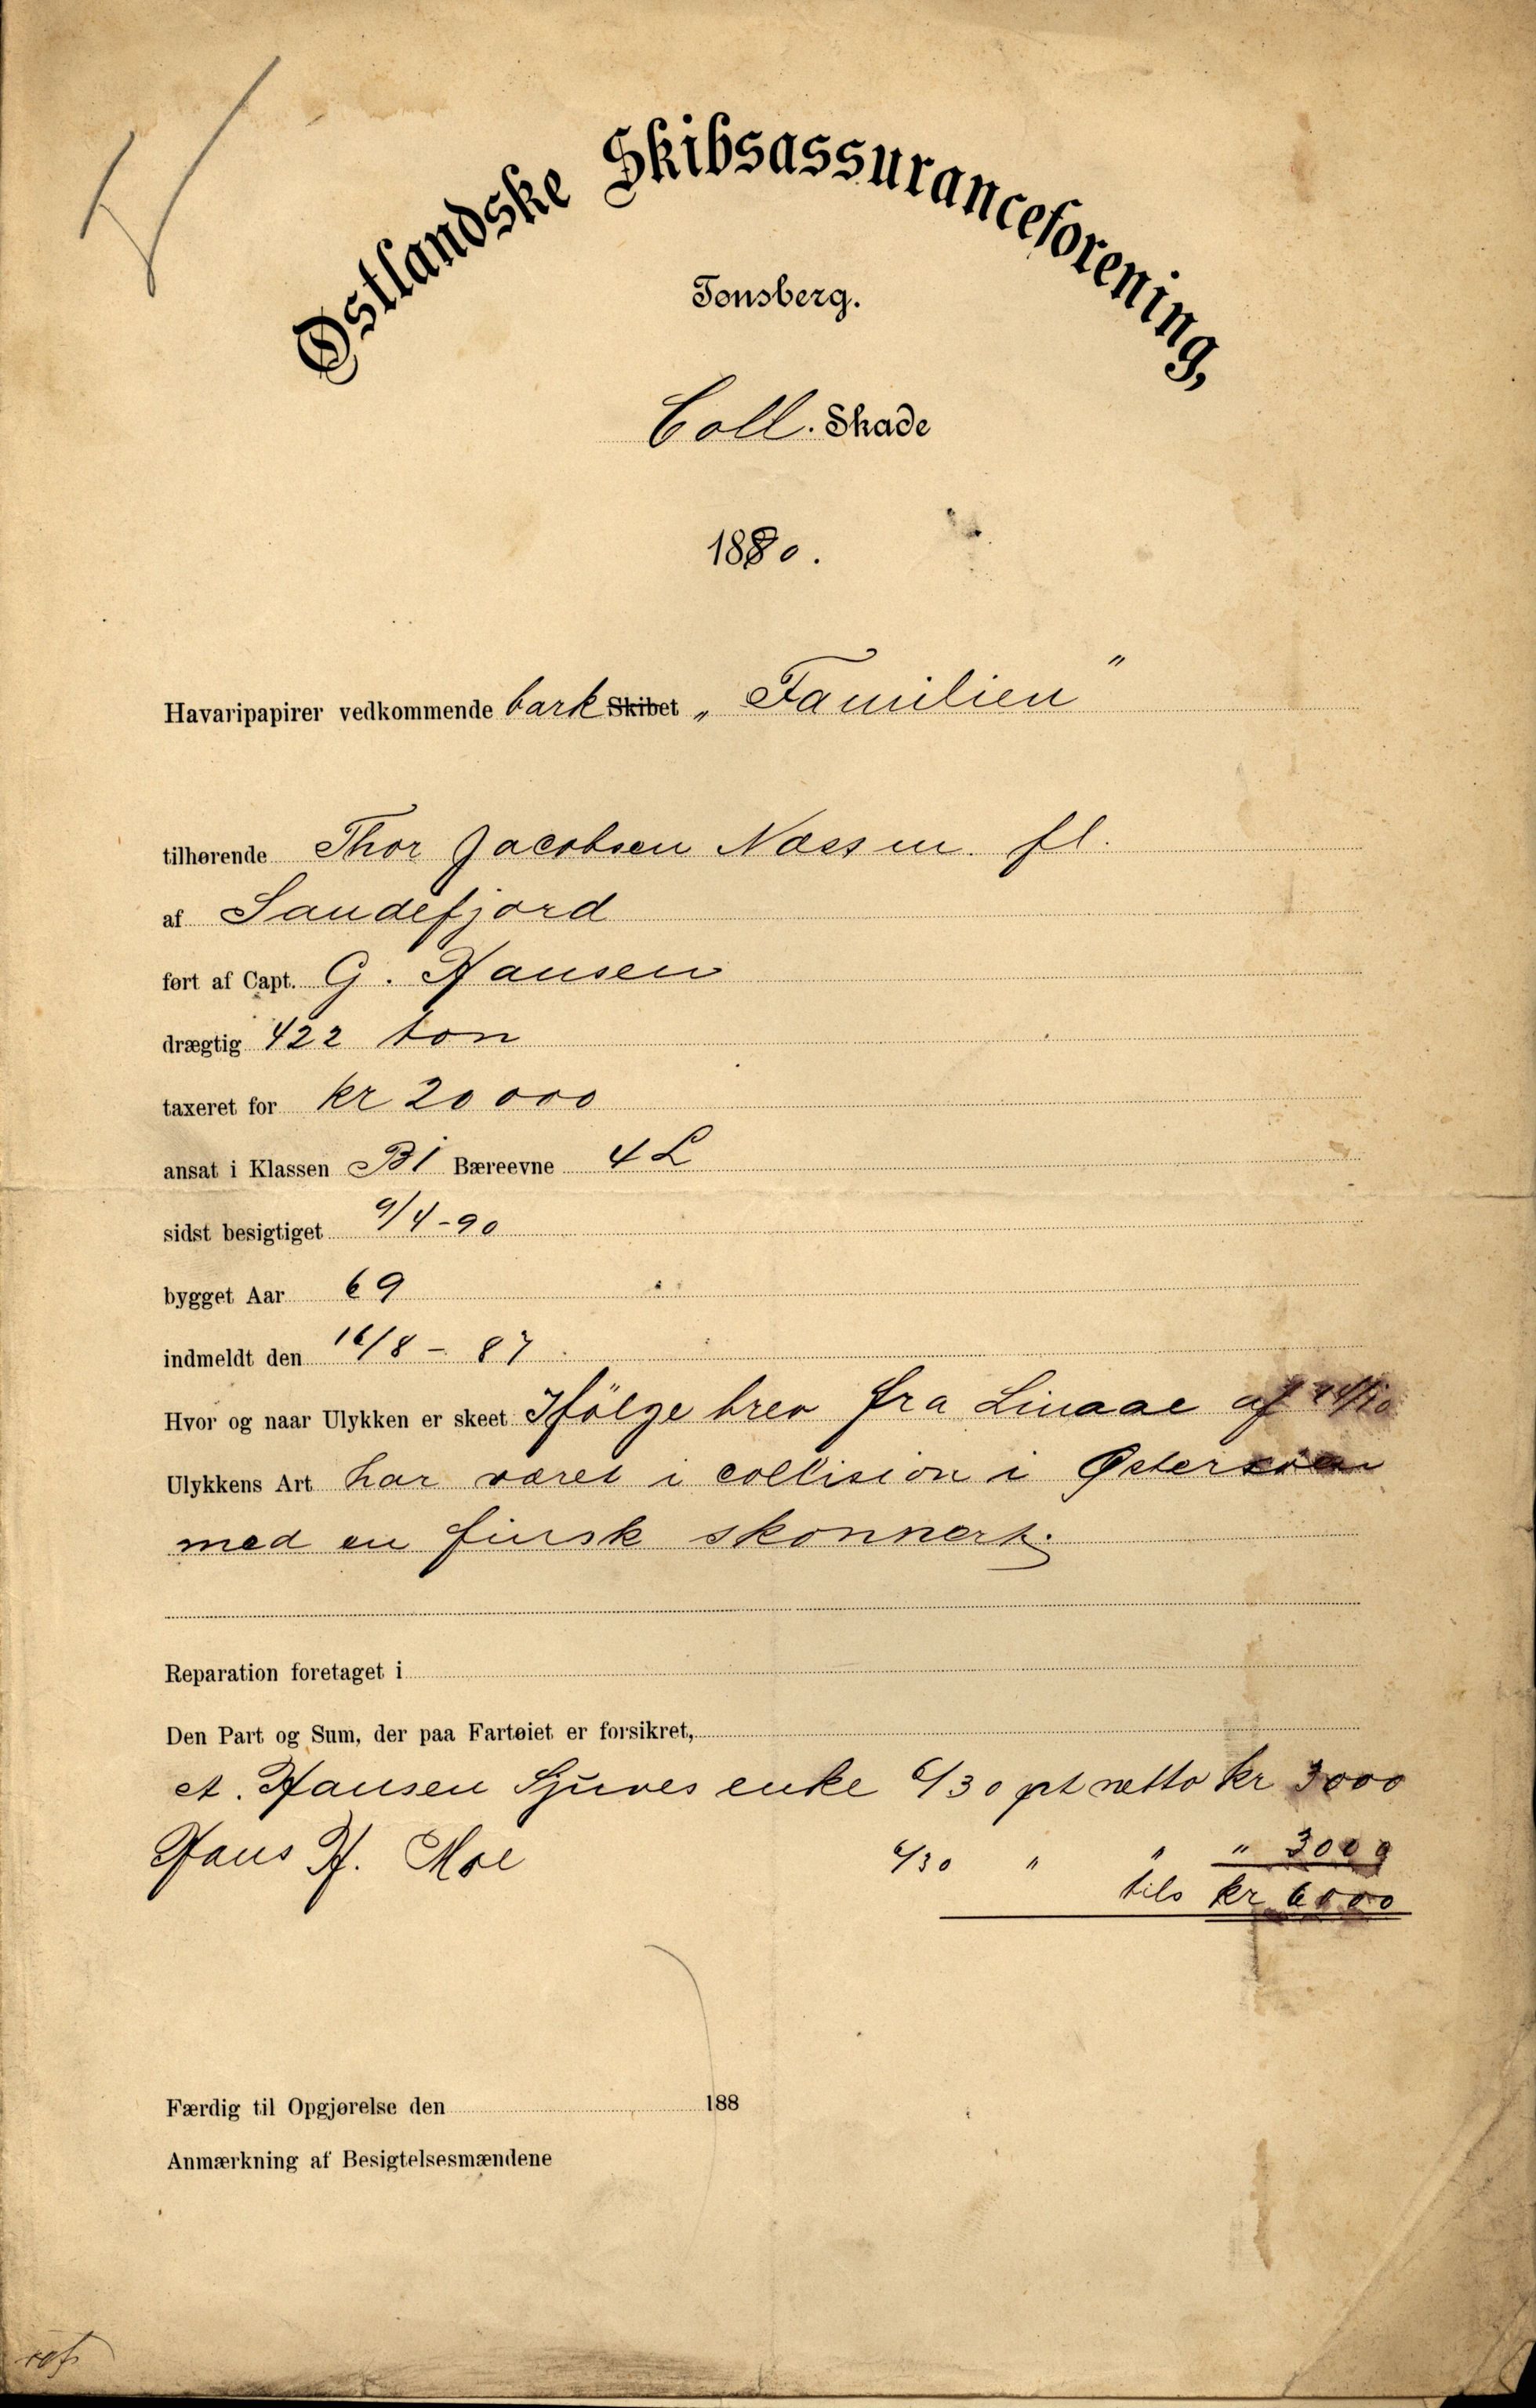 Østlandske Skibsassuranceforening,
Tønsberg.
Coll. Skade
1890.
Havaripapirer vedkommende bark Skibet „Familien"
tilhørende Thor Jacobsen Næss m. fl.
af Sandefjord
ført af Capt. G. Hansen
drægtig 422 ton
taxeret for kr 20000
ansat i Klassen B1 Bæreevne 4 L
sidst besigtiget 9/4-90
bygget Aar 69
indmeldt den 16/8 - 87
Hvor og naar Ulykken er skeet Ifölge brev fra Linaae af
Ulykkens Art har været i collision i Østersöen
med en finsk skonnert.
Reparation foretaget i
Den Part og Sum, der paa Fartøiet er forsikret,
A. Hansen Sjuves enke 6/30 prt netto kr 3000
Hans H. Moe 6/30 " " " 3000
tils kr 6000
Færdig til Opgjørelse den 188
Anmærkning af Besigtelsesmændene